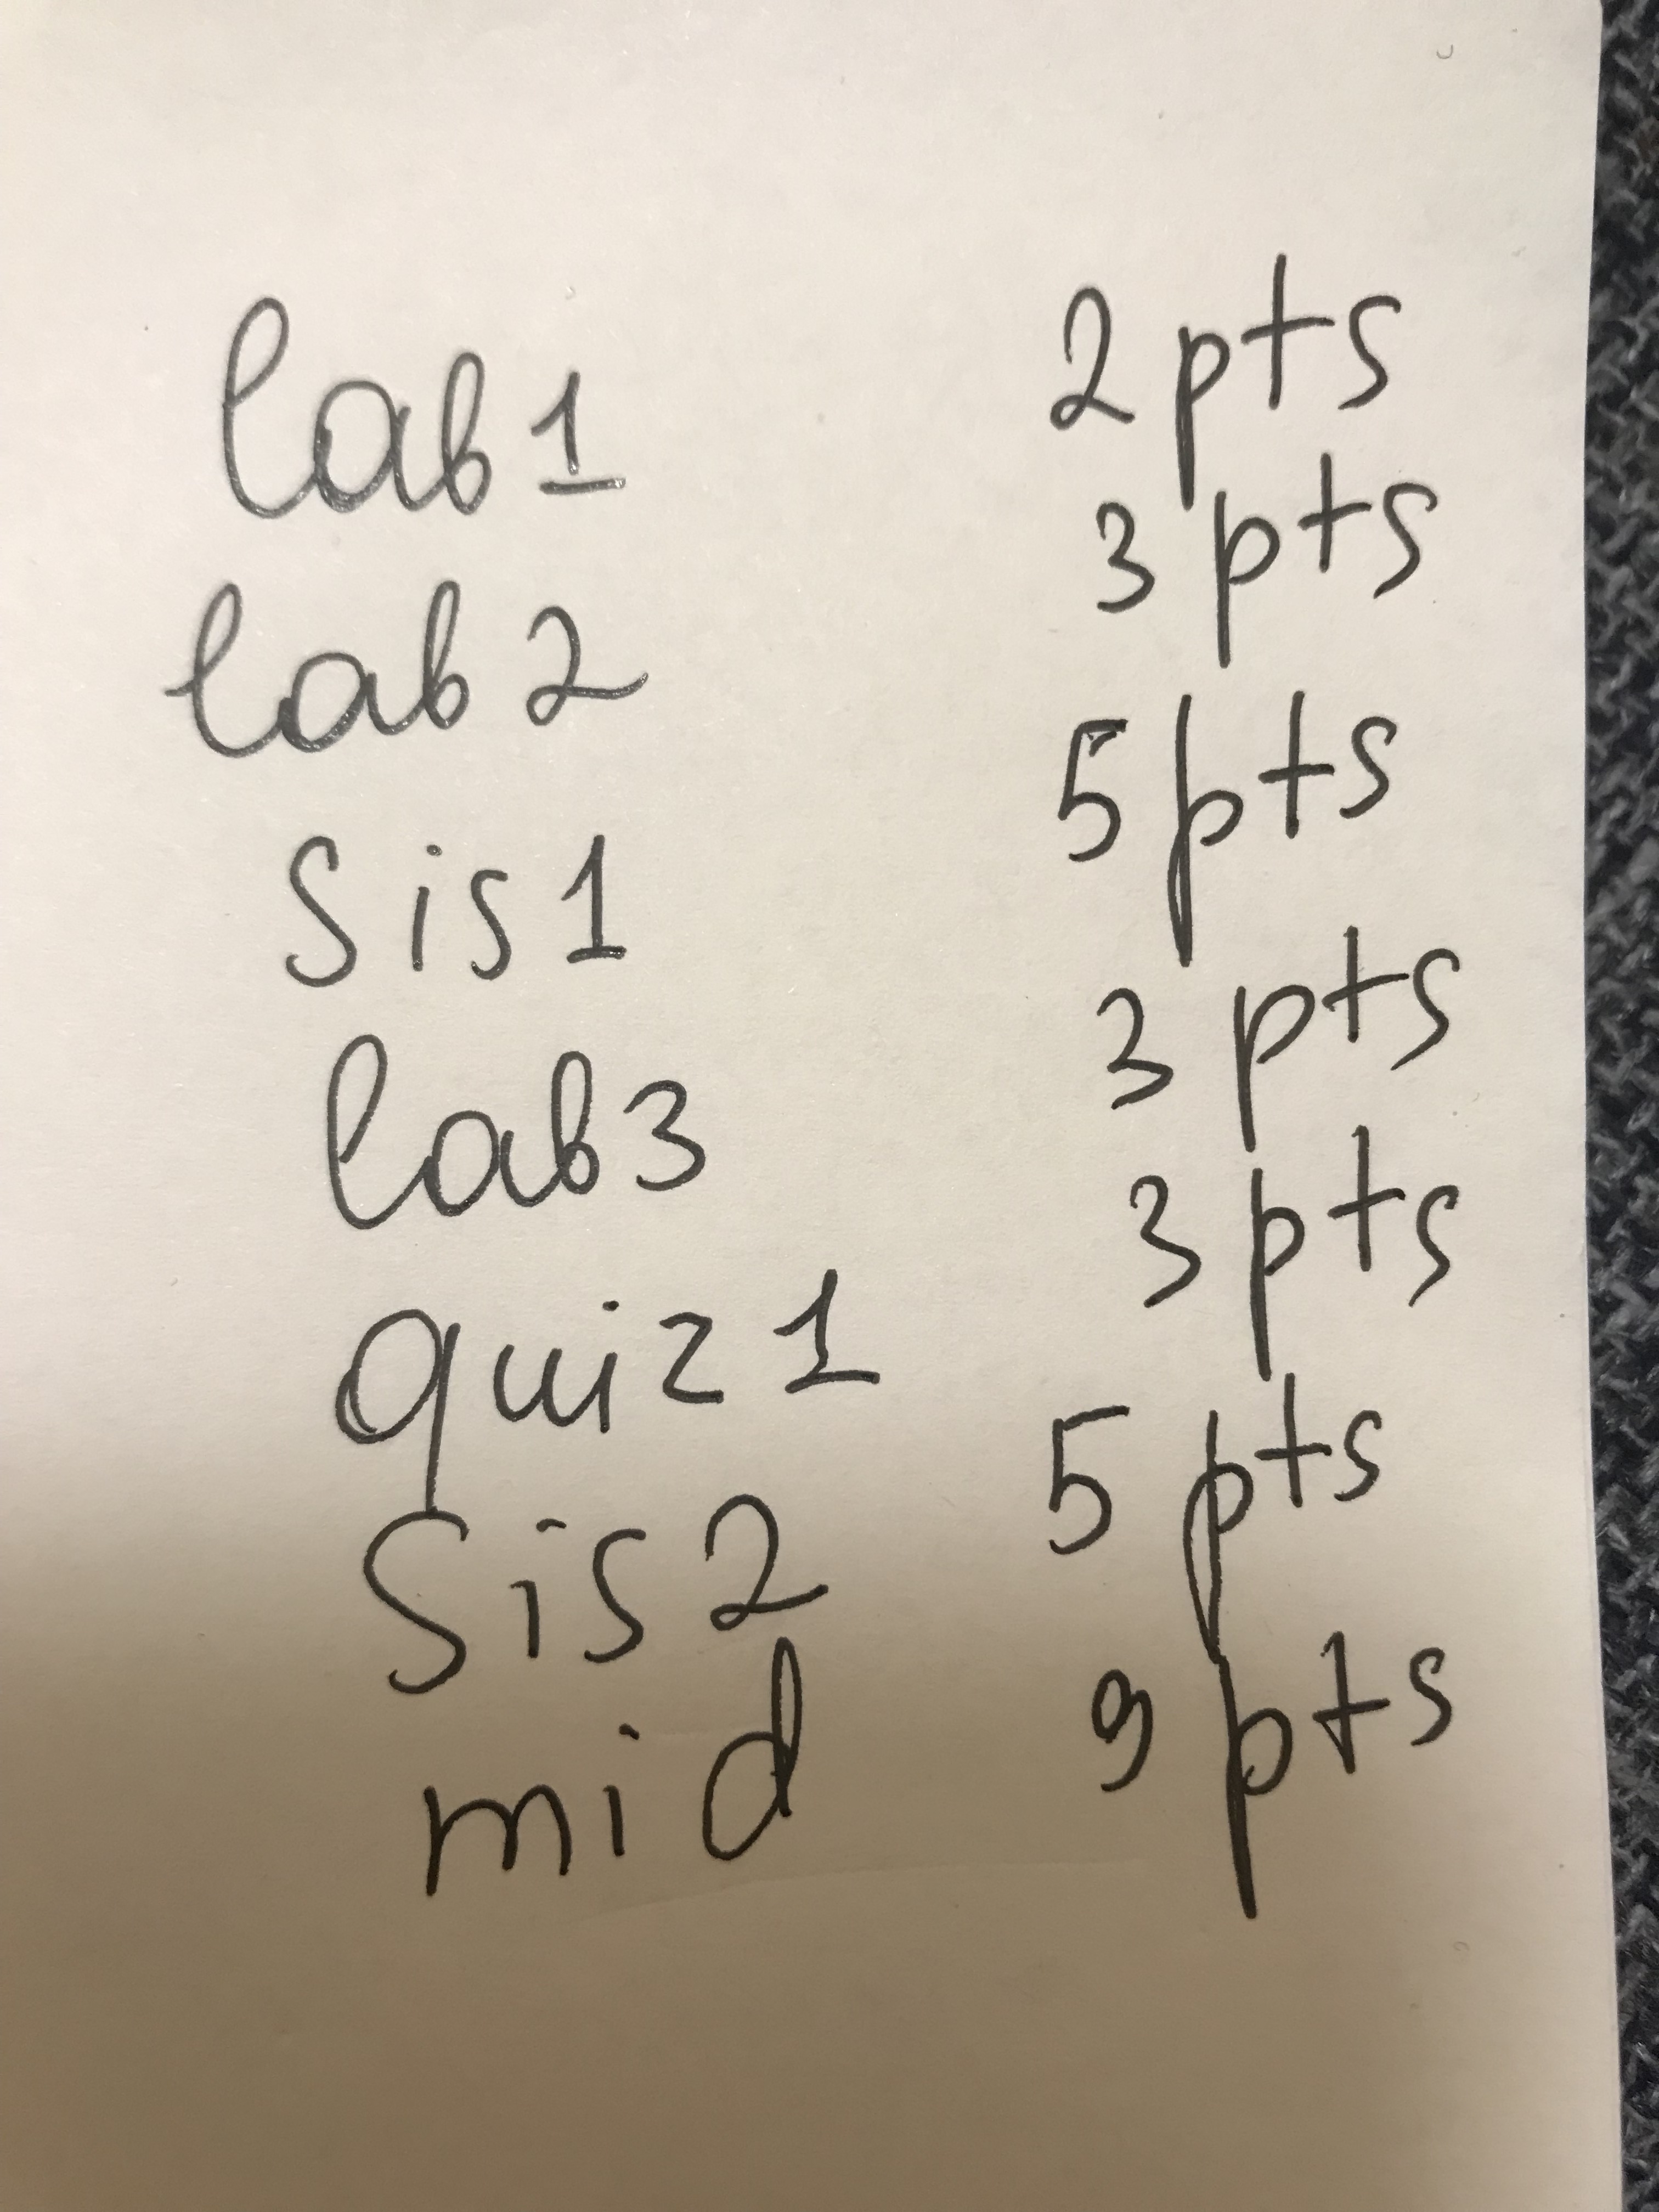 lab 1 2 pts
lab 2 3 pts
Sis 1 5 pts
lab 3 3 pts
quiz 1 3 pts
Sis 2 5 pts
mid 9 pts